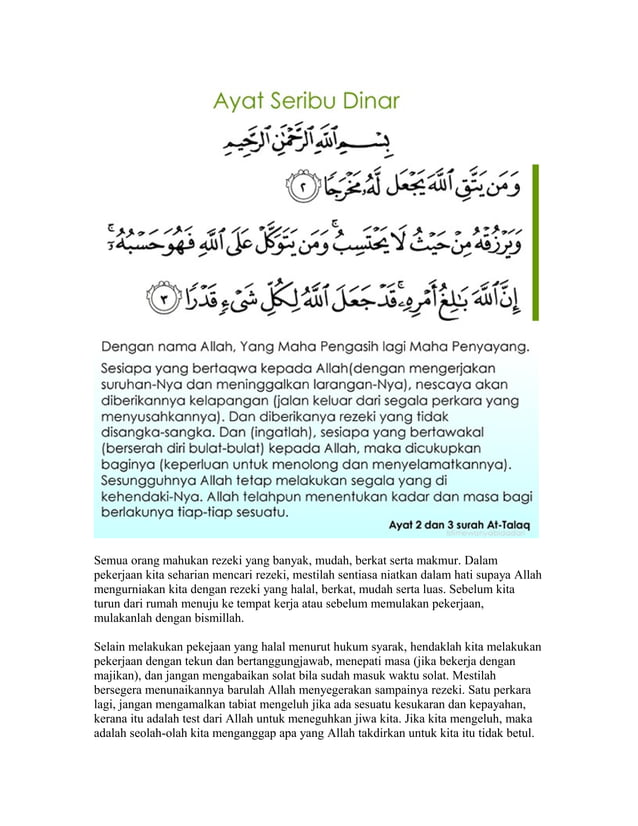 Ayat Seribu Dinar
بِسْمِ ٱللَّهِ ٱلرَّحْمَٰنِ ٱلرَّحِيمِ
وَمَن يَتَّقِ ٱللَّهَ يَجْعَل لَّهُۥ مَخْرَجًا ٢
وَيَرْزُقْهُ مِنْ حَيْثُ لَا يَحْتَسِبُ ۚ وَمَن يَتَوَكَّلْ عَلَى ٱللَّهِ فَهُوَ حَسْبُهُۥٓ ۚ
إِنَّ ٱللَّهَ بَٰلِغُ أَمْرِهِۦ ۚ قَدْ جَعَلَ ٱللَّهُ لِكُلِّ شَىْءٍ قَدْرًا ٣
Dengan nama Allah, Yang Maha Pengasih lagi Maha Penyayang.
Sesiapa yang bertaqwa kepada Allah(dengan mengerjakan
suruhan-Nya dan meninggalkan larangan-Nya), nescaya akan
diberikannya kelapangan (jalan keluar dari segala perkara yang
menyusahkannya). Dan diberikanya rezeki yang tidak
disangka-sangka. Dan (ingatlah), sesiapa yang bertawakal
(berserah diri bulat-bulat) kepada Allah, maka dicukupkan
baginya (keperluan untuk menolong dan menyelamatkannya).
Sesungguhnya Allah tetap melakukan segala yang di
kehendaki-Nya. Allah telahpun menentukan kadar dan masa bagi
berlakunya tiap-tiap sesuatu.
Ayat 2 dan 3 surah At-Talaq
Semua orang mahukan rezeki yang banyak, mudah, berkat serta makmur. Dalam
pekerjaan kita seharian mencari rezeki, mestilah sentiasa niatkan dalam hati supaya Allah
mengurniakan kita dengan rezeki yang halal, berkat, mudah serta luas. Sebelum kita
turun dari rumah menuju ke tempat kerja atau sebelum memulakan pekerjaan,
mulakanlah dengan bismillah.
Selain melakukan pekejaan yang halal menurut hukum syarak, hendaklah kita melakukan
pekerjaan dengan tekun dan bertanggungjawab, menepati masa (jika bekerja dengan
majikan), dan jangan mengabaikan solat bila sudah masuk waktu solat. Mestilah
bersegera menunaikannya barulah Allah menyegerakan sampainya rezeki. Satu perkara
lagi, jangan mengamalkan tabiat mengeluh jika ada sesuatu kesukaran dan kepayahan,
kerana itu adalah test dari Allah untuk meneguhkan jiwa kita. Jika kita mengeluh, maka
adalah seolah-olah kita menganggap apa yang Allah takdirkan untuk kita itu tidak betul.